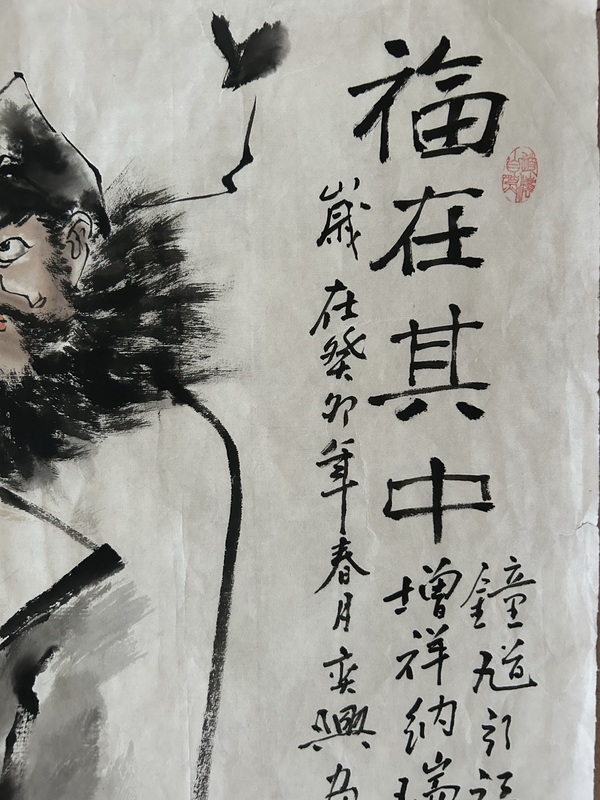 福在其中
鐘馗引福
增祥納瑞
歲在癸卯年春月奕興